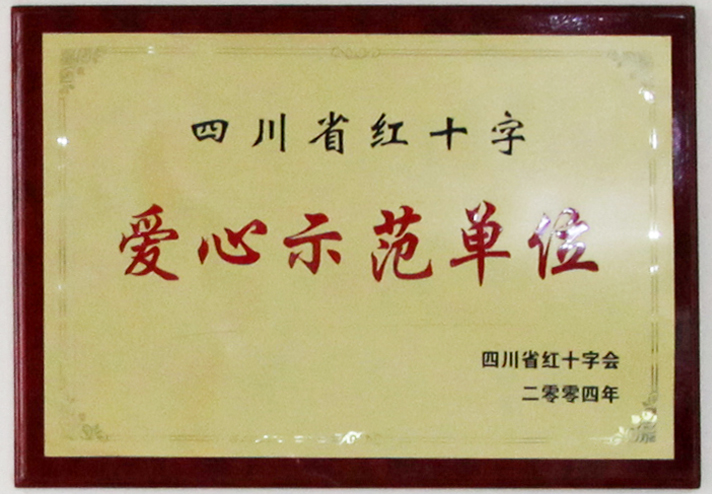 四川省红十字
爱心示范单位
四川省红十字会
二零零四年